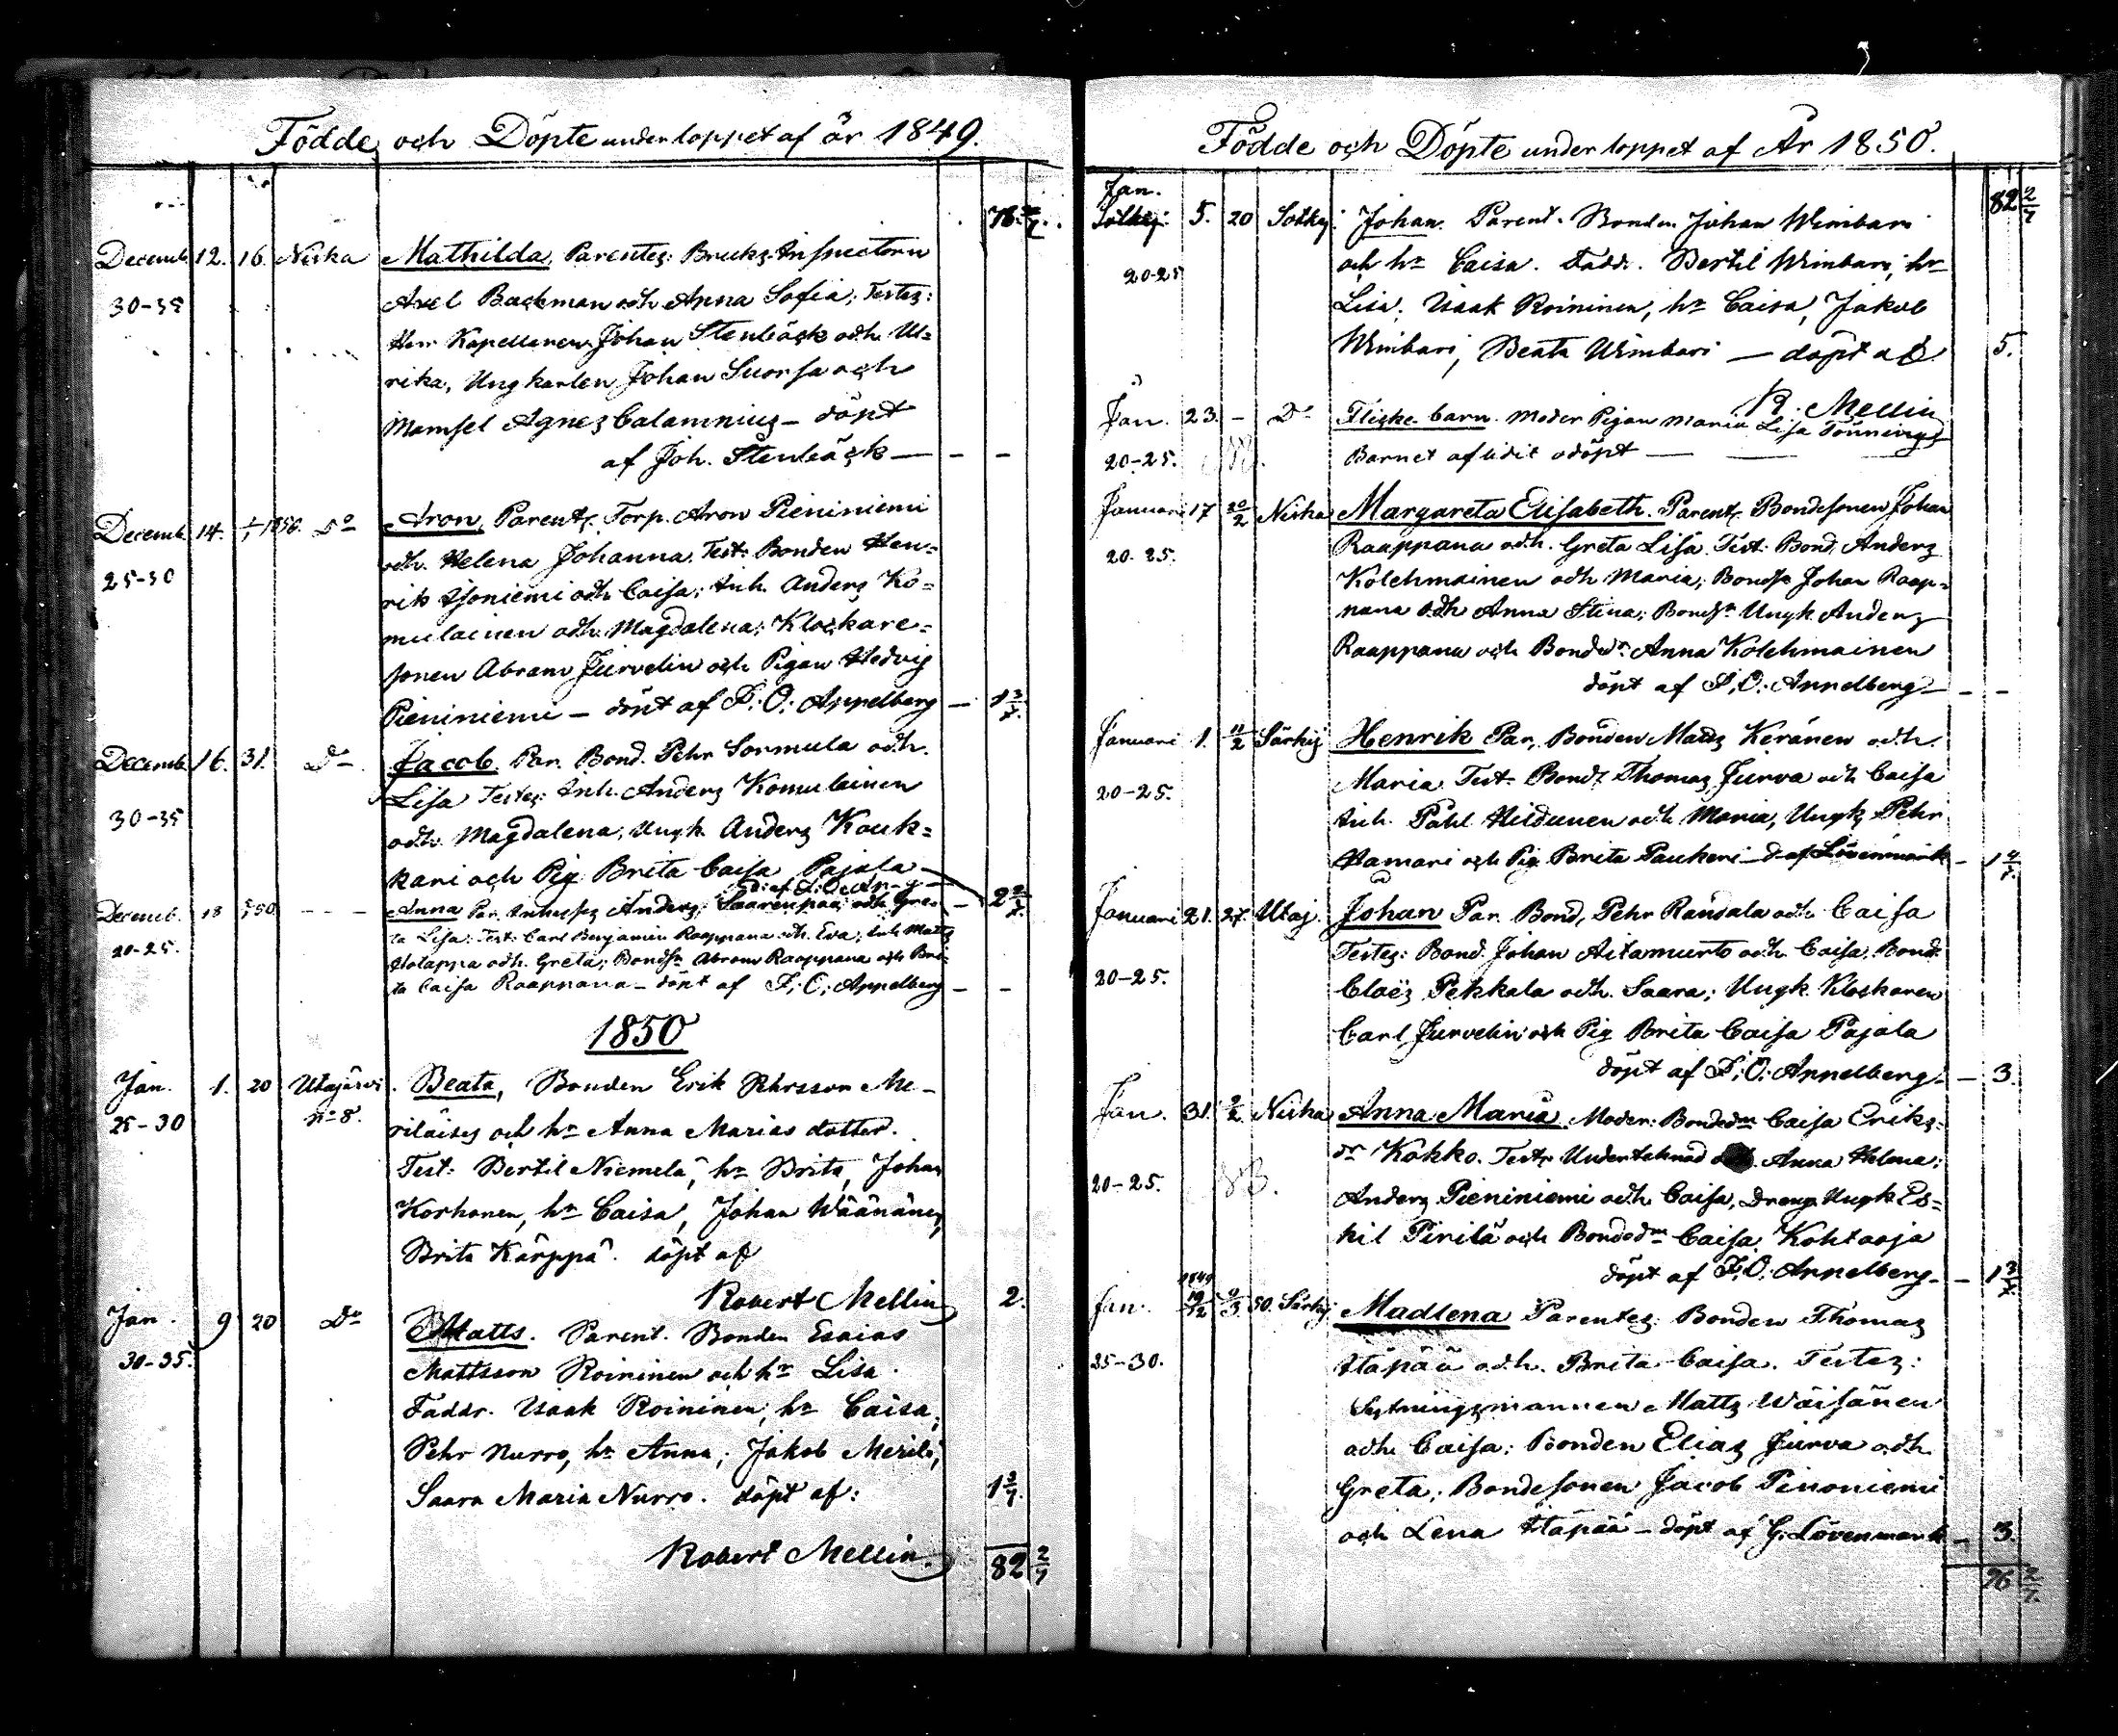 Födde och Döpte under loppet af år 1849.
76.
Decemb. 12. 16. Niska Mathilda, Parentes: Bruks Inspectorn
30-35 Axel Backman och Anna Sofia; Testes:
Herr Kapellanen Johan Stenbäck och Ul=
rika, Ungkarlen Johan Suorsa och
Mamsel Agnes Calamnius - döpt
af Joh. Stenbäck — - -
Decemb. 14. 1850. Do Aron, Parent. Torp. Aron Pieniniemi
25-30 och Helena Johanna. Test: Bonden Hen=
rik Isoniemi och Caisa; Inh. Anders Ko=
mulainen och Magdalena; Klockare=
sonen Abram Jurvelin och Pigan Hedvig
Pieniniemi - döpt af F. O. Appelberg - 1 3/7.
Decemb. 16. 31. Do Jacob. Par. Bond. Pehr Sormula och
30-35 Lisa Testes: Inh. Anders Komulainen
och Magdalena, Ungk. Anders Kouk=
kari och Pig. Brita Caisa Pajala
Decemb. 18 50 - - - Anna Par. Anders Saarenpää och Gre= - 2
20-25. ta Lisa. Test: Carl Benjamin Raappana och Eva; Inh Matts
Hotappa och Greta; Bondsn Abram Raappana och Bri=
ta Caisa Raappana - döpt af F. O. Appelberg - -
1850
Jan. 1. 20 Utajärvi Beata, Bonden Erik Pehrsson Me-
25-30 no 8. riläises och hu Anna Marias dotter.
Test: Bertil Niemelä, hu Brita, Johan
Korhonen, hu Caisa, Johan Wäänänen,
Brita Kärppä. döpt af
Robert Mellin 2.
Jan. 9 20 Do Matts. Parent. Bonden Esaias
30-35. Mattsson Roininen och hu Lisa.
Faddr. Isaak Roininen, hu Caisa,
Pehr Nurro, hu Anna; Jakob Merilä,
Saara Maria Nurro. döpt af: 1 3/7.
Robert Mellin. 82 2/7
Födde och Döpte under loppet af År 1850.
Jan. 82 2/7
Sotkej. 5. 20 Sotkj. Johan. Parent. Bonden Johan Wimbari
20-25 och hu Caisa. Faddr. Bertil Wimbari, hu
Lisa. Isaak Roininen, hu Caisa, Jakob
Wimbari, Beata Wimbari — döpt af 5.
R. Mellin
Jan. 23. - Do Flicke barn. Moder Pigan Maria Lisa Tönning
20-25. Barnet aflidit odöpt —
Januari 17 20/2 Niska Margareta Elisabeth. Parent. Bondesonen Johan
20-25. Raappana och Greta Lisa. Test: Bond. Anders
Kolehmainen och Maria; Bondsn Johan Raap=
pana och Anna Stina; Bondsn Ungk. Anders
Raappana och Bonddr. Anna Kolehmainen
döpt af F. O. Appelberg - - -
Januari 1. 11/2 Särkij Henrik Par, Bonden Matts Keränen och
20-25. Maria Test: Bond. Thomas Jurva och Caisa
Inh. Påhl Hildunen och Maria, Ungk Pehr
Hamari och Pig Brita Paukeri d. af Lövenmark - 1 4/7.
Januari 21. 27. Utaj. Johan Par. Bond, Pehr Randala och Caisa
20-25. Testes: Bond. Johan Aitamurto och Caisa, Bond.
Claës Pekkala och Saara; Ungk. Klockaren
Carl Jurvelin och Pig Brita Caisa Pajala
döpt af F. O. Appelberg - - 3.
Jan. 31. 2/2 Niska Anna Maria, Moder: Bondedn Caisa Eriks=
20-25. dr Kokko. Test: Undertecknad och Anna Helena;
Anders Pieniniemi och Caisa, Dreng. Ungk Es=
kil Pirilä och Bondedn Caisa Kohtaoja
döpt af F. O. Appelberg - - 1 3/7.
Jan. 1849 19/12 50. Särkj Madlena Parentes: Bonden Thomas
25-30. Itäpää och Brita Caisa. Testes:
Sytningsmannen Matts Wäisänen
och Caisa; Bonden Elias Jurva och
Greta; Bondesonen Jacob Pinoniemi
och Lena Itäpää - döpt af G. Lövenmark - 3.
96 2/7.